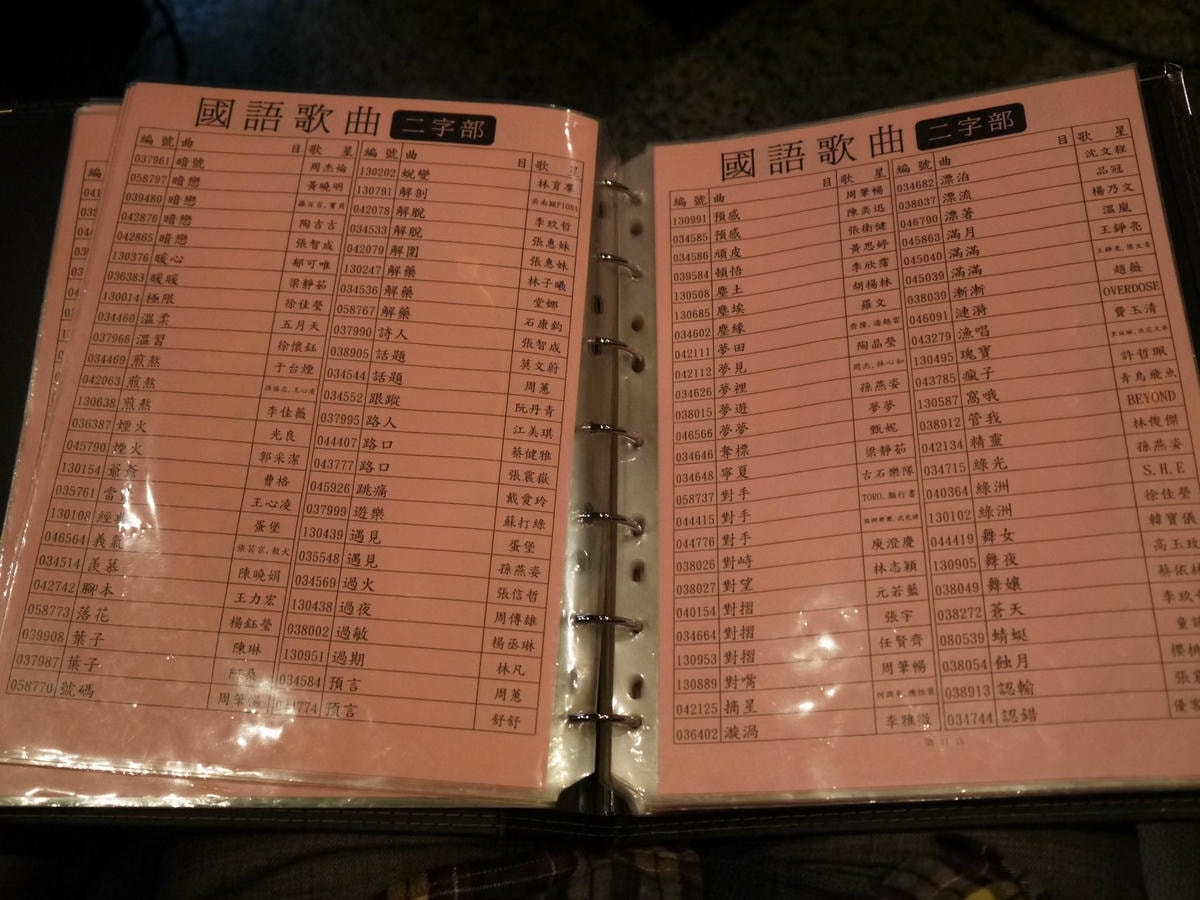 國語歌曲 二字部
編號 曲目 歌星
037961 暗號 周杰倫
058797 暗戀 黃曉明
039480 暗戀 羅百吉,寶貝
042876 暗戀
042865 暗戀 張智成
130376 暖心 郁可唯
036383 暖暖 梁靜茹
130014 極限 徐佳瑩
034460 溫柔 五月天
037966 溫習 徐懷鈺
034469 煎熬 于台煙
042063 煎熬
130638 煎熬 李佳薇
036387 煙火 光良
045790 煙火 郭采潔
130154 爺爺 曹格
035761 當 王心凌
130108 經典 蛋堡
046564 義氣 張芸京,
034514 羨慕 陳曉娟
042742 腳本 王力宏
058773 落花 楊鈺瑩
039908 葉子 陳琳
037987 葉子 阿桑
058770 號碼 周筆暢
編號 曲目 歌星
130202 蛻變 林育羣
130791 解剖 FIONA
042078 解脫 李玖哲
034533 解脫 張惠妹
042079 解圍 張惠妹
130247 解藥 林子曦
034536 解藥 堂娜
058767 解藥 石康鈞
037990 詩人 張智成
038905 話題 莫文蔚
034544 話題 周蕙
034552 跟蹤 阮丹青
037995 路人 江美琪
044407 路口 蔡健雅
043777 路口 張震嶽
045926 跳痛 戴愛玲
037999 遊樂 蘇打綠
130439 遇見 蛋堡
035548 遇見 孫燕姿
034569 過火 張信哲
130438 過夜 周傳雄
038002 過敏 楊丞琳
130951 過期 林凡
034584 預言 周蕙
044774 預言 舒舒
國語歌曲 二字部
編號 曲目 歌星
130991 預感 周筆暢
034585 預感 陳奕迅
034586 頑皮 張衛健
039584 頓悟 黃思婷
130508 塵土 李欣霈
130685 塵埃 胡楊林
034602 塵緣 羅文
042111 夢田 齊豫,潘越雲
042112 夢見 陶晶瑩
034626 夢裡 周杰,林心如
038015 夢遊 孫燕姿
046566 夢夢 夢夢
034646 奪標 甄妮
034648 寧夏 梁靜茹
058737 對手 古石樂隊
044415 對手 TORO,腦行者
044776 對手
038026 對峙 庾澄慶
038027 對望 林志穎
040154 對摺 元若藍
034664 對摺 張宇
130953 對摺 任賢齊
130889 對嘴 周筆暢
042125 摘星
036402 漩渦 李雅微
編號 曲目 歌星
034682 漂泊 沈文程
038037 漂流 品冠
046790 漂著 楊乃文
045863 滿月 溫嵐
045040 滿滿 王錚亮
045039 滿滿 王錚亮,梁文音
038039 漸漸 趙薇
046091 漣漪 OVERDOSE
043279 漁唱 費玉清
130495 瑰寶
043785 瘋子 許哲珮
130587 窩哦 青鳥飛魚
038912 管我 BEYOND
042134 精靈 林俊傑
034715 綠光 孫燕姿
040364 綠洲 S.H.E
130102 綠洲 徐佳瑩
044419 舞女 韓寶儀
130905 舞夜 高玉玫
038049 舞孃 蔡依林
038272 蒼天 李玖
080539 蜻蜓 童
038054 蝕月 櫻桃
038913 認輸 張
034744 認錯 優客